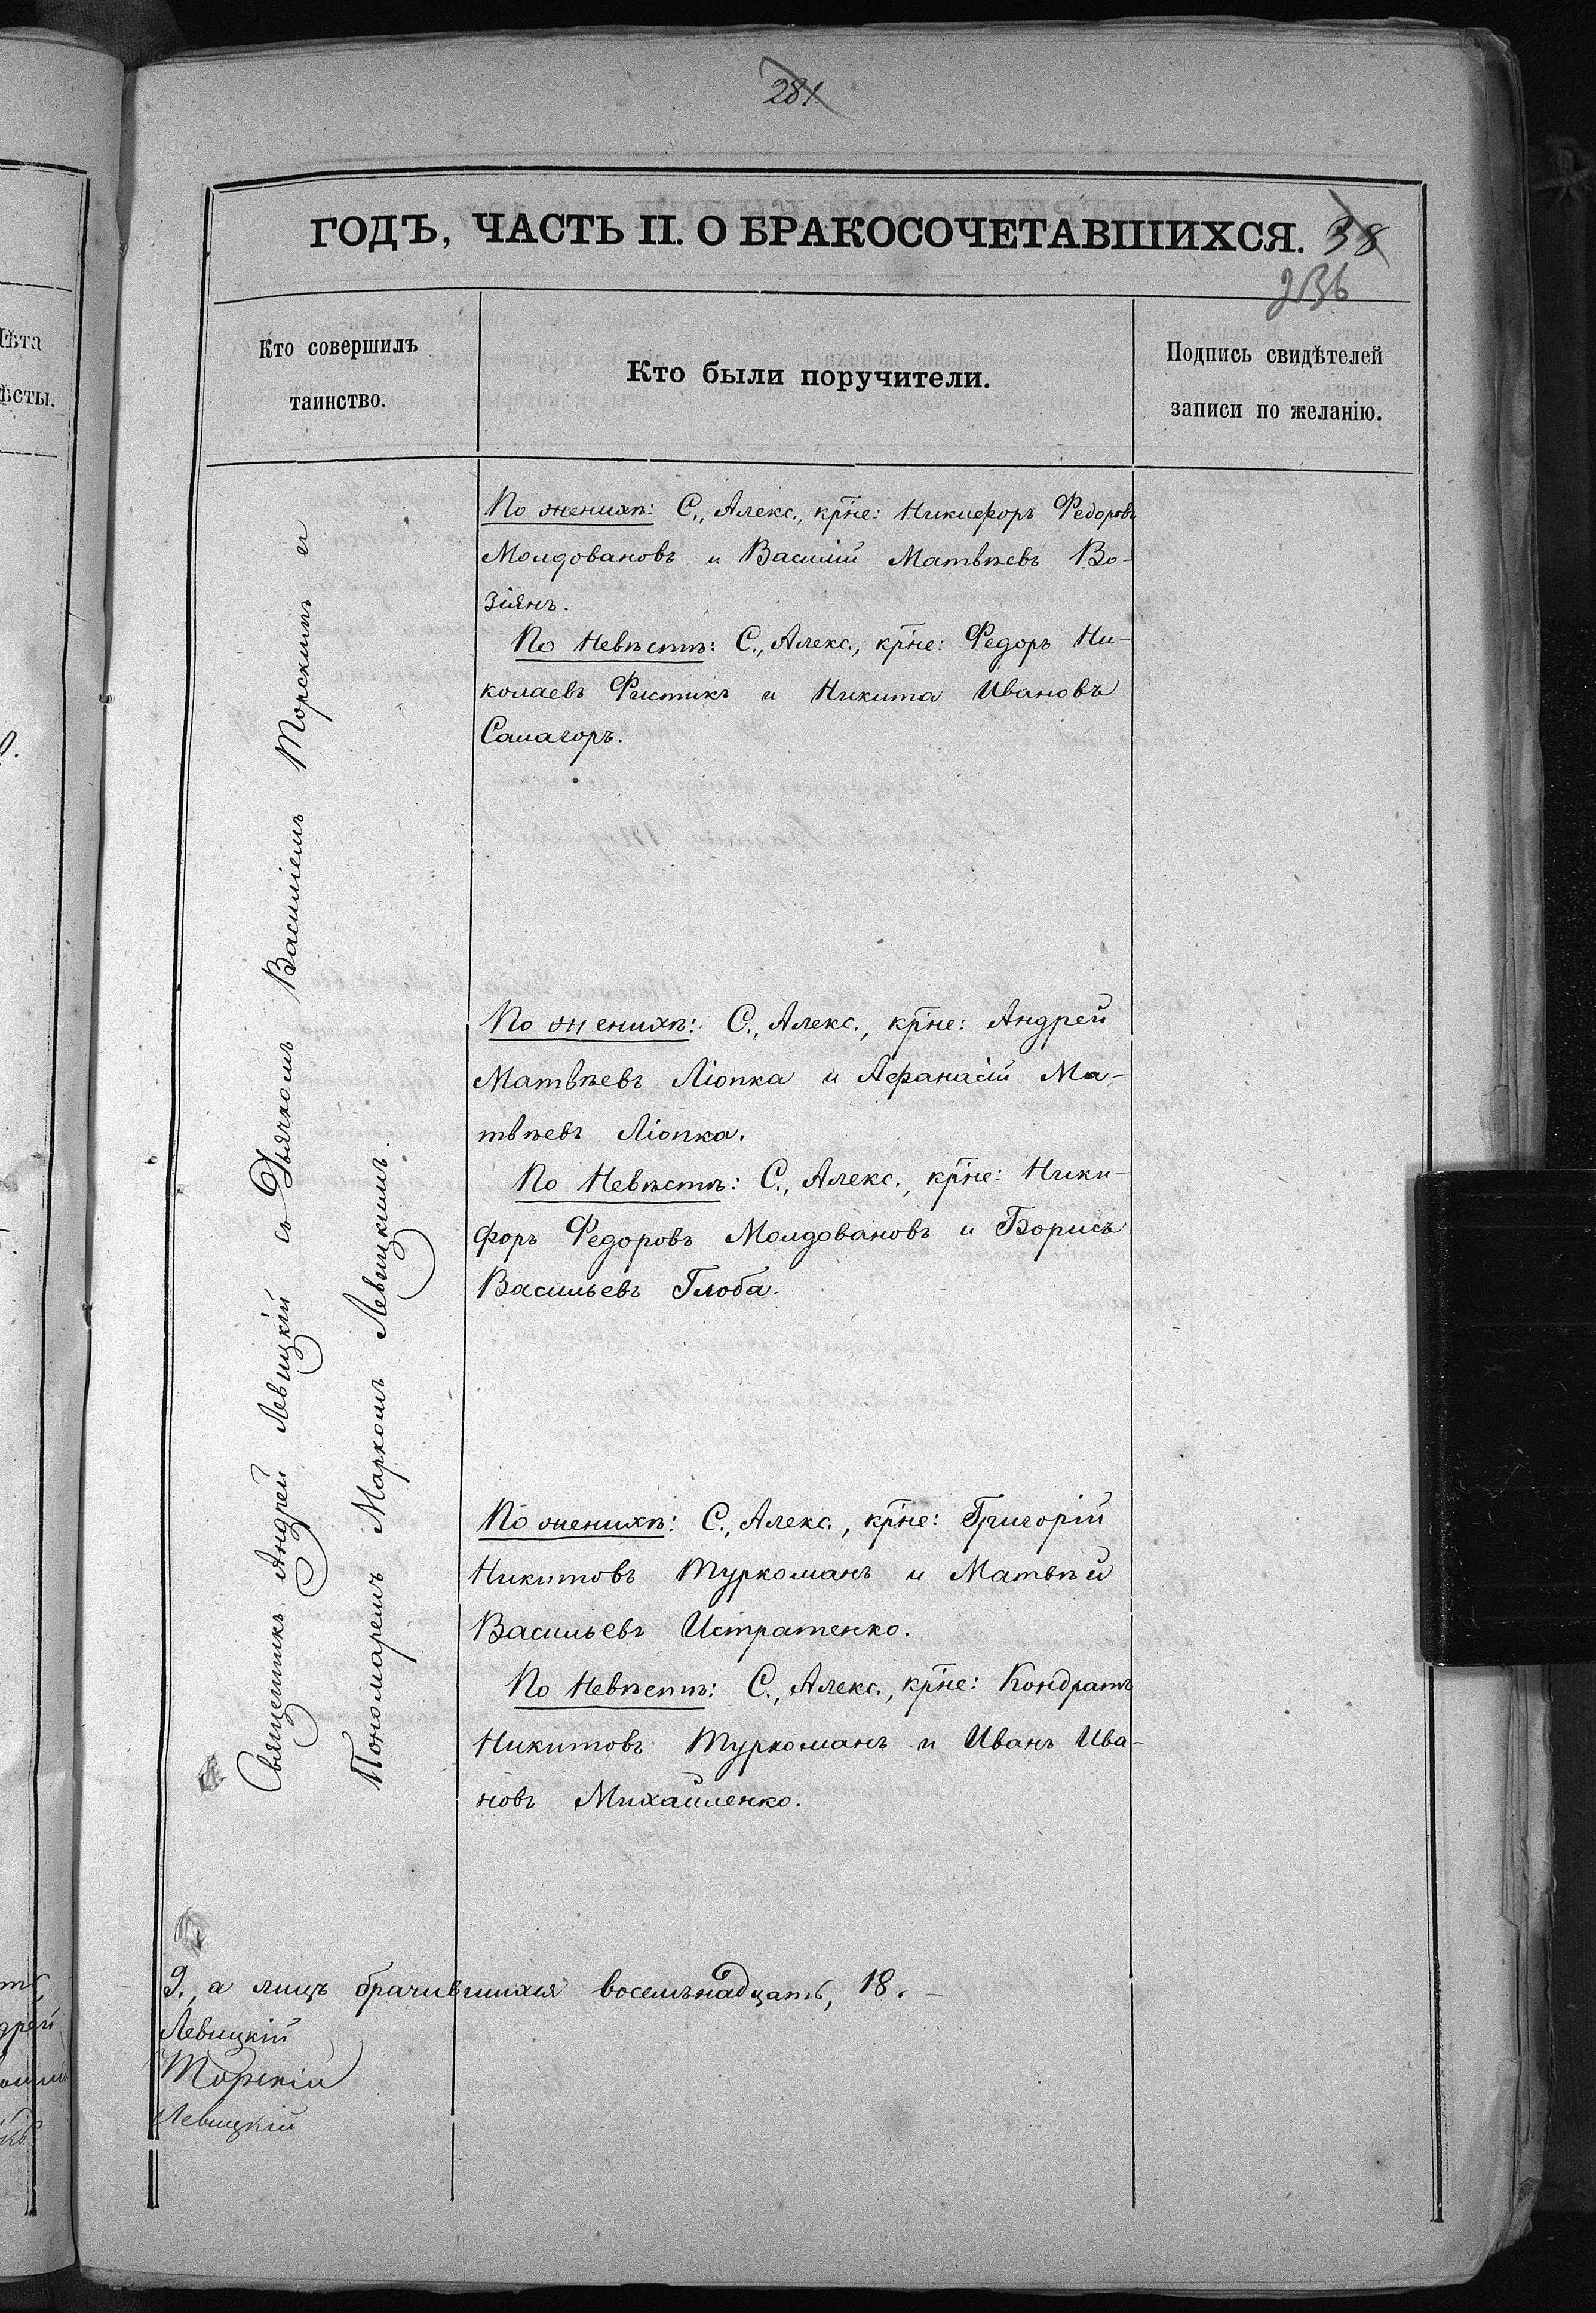 281
ГОДЪ, ЧАСТЬ II. О БРАКОСОЧЕТАВШИХСЯ. 38
236
Кто совершилъ
таинство.
Кто были поручители.
Подпись свидѣтелей
записи по желанію.
Священникъ Андрей Левицкій съ Дьячкомъ Василіемъ Торскимъ и
Пономаремъ Маркомъ Левицкимъ.
По женихѣ: С., Алекс., кр̅не: Никифоръ Федоровъ
Молдовановъ и Василій Матвѣевъ Во-
зіянъ.
По Невѣстѣ: С., Алекс., кр̅не: Федоръ Ни-
колаевъ Фистикъ и Никита Ивановъ
Самагоръ.
По женихѣ: С., Алекс., кр̅не: Андрей
Матвѣевъ Ліопка и Афанасій Ма-
твѣевъ Ліопка.
По Невѣстѣ: С., Алекс., кр̅не: Ники-
форъ Федоровъ Молдовановъ и Борисъ
Васильевъ Глоба.
По женихѣ: С., Алекс., кр̅не: Григорій
Никитовъ Туркоманъ и Матвѣй
Васильевъ Истратенко.
По Невѣстѣ: С., Алекс., кр̅не: Кондратъ
Никитовъ Туркоманъ и Иванъ Ива-
новъ Михайленко.
9., а лицъ брачившихся восемьнадцать, 18. –
Левицкій
Торскій
Левицкій
лѣта
ѣсты.